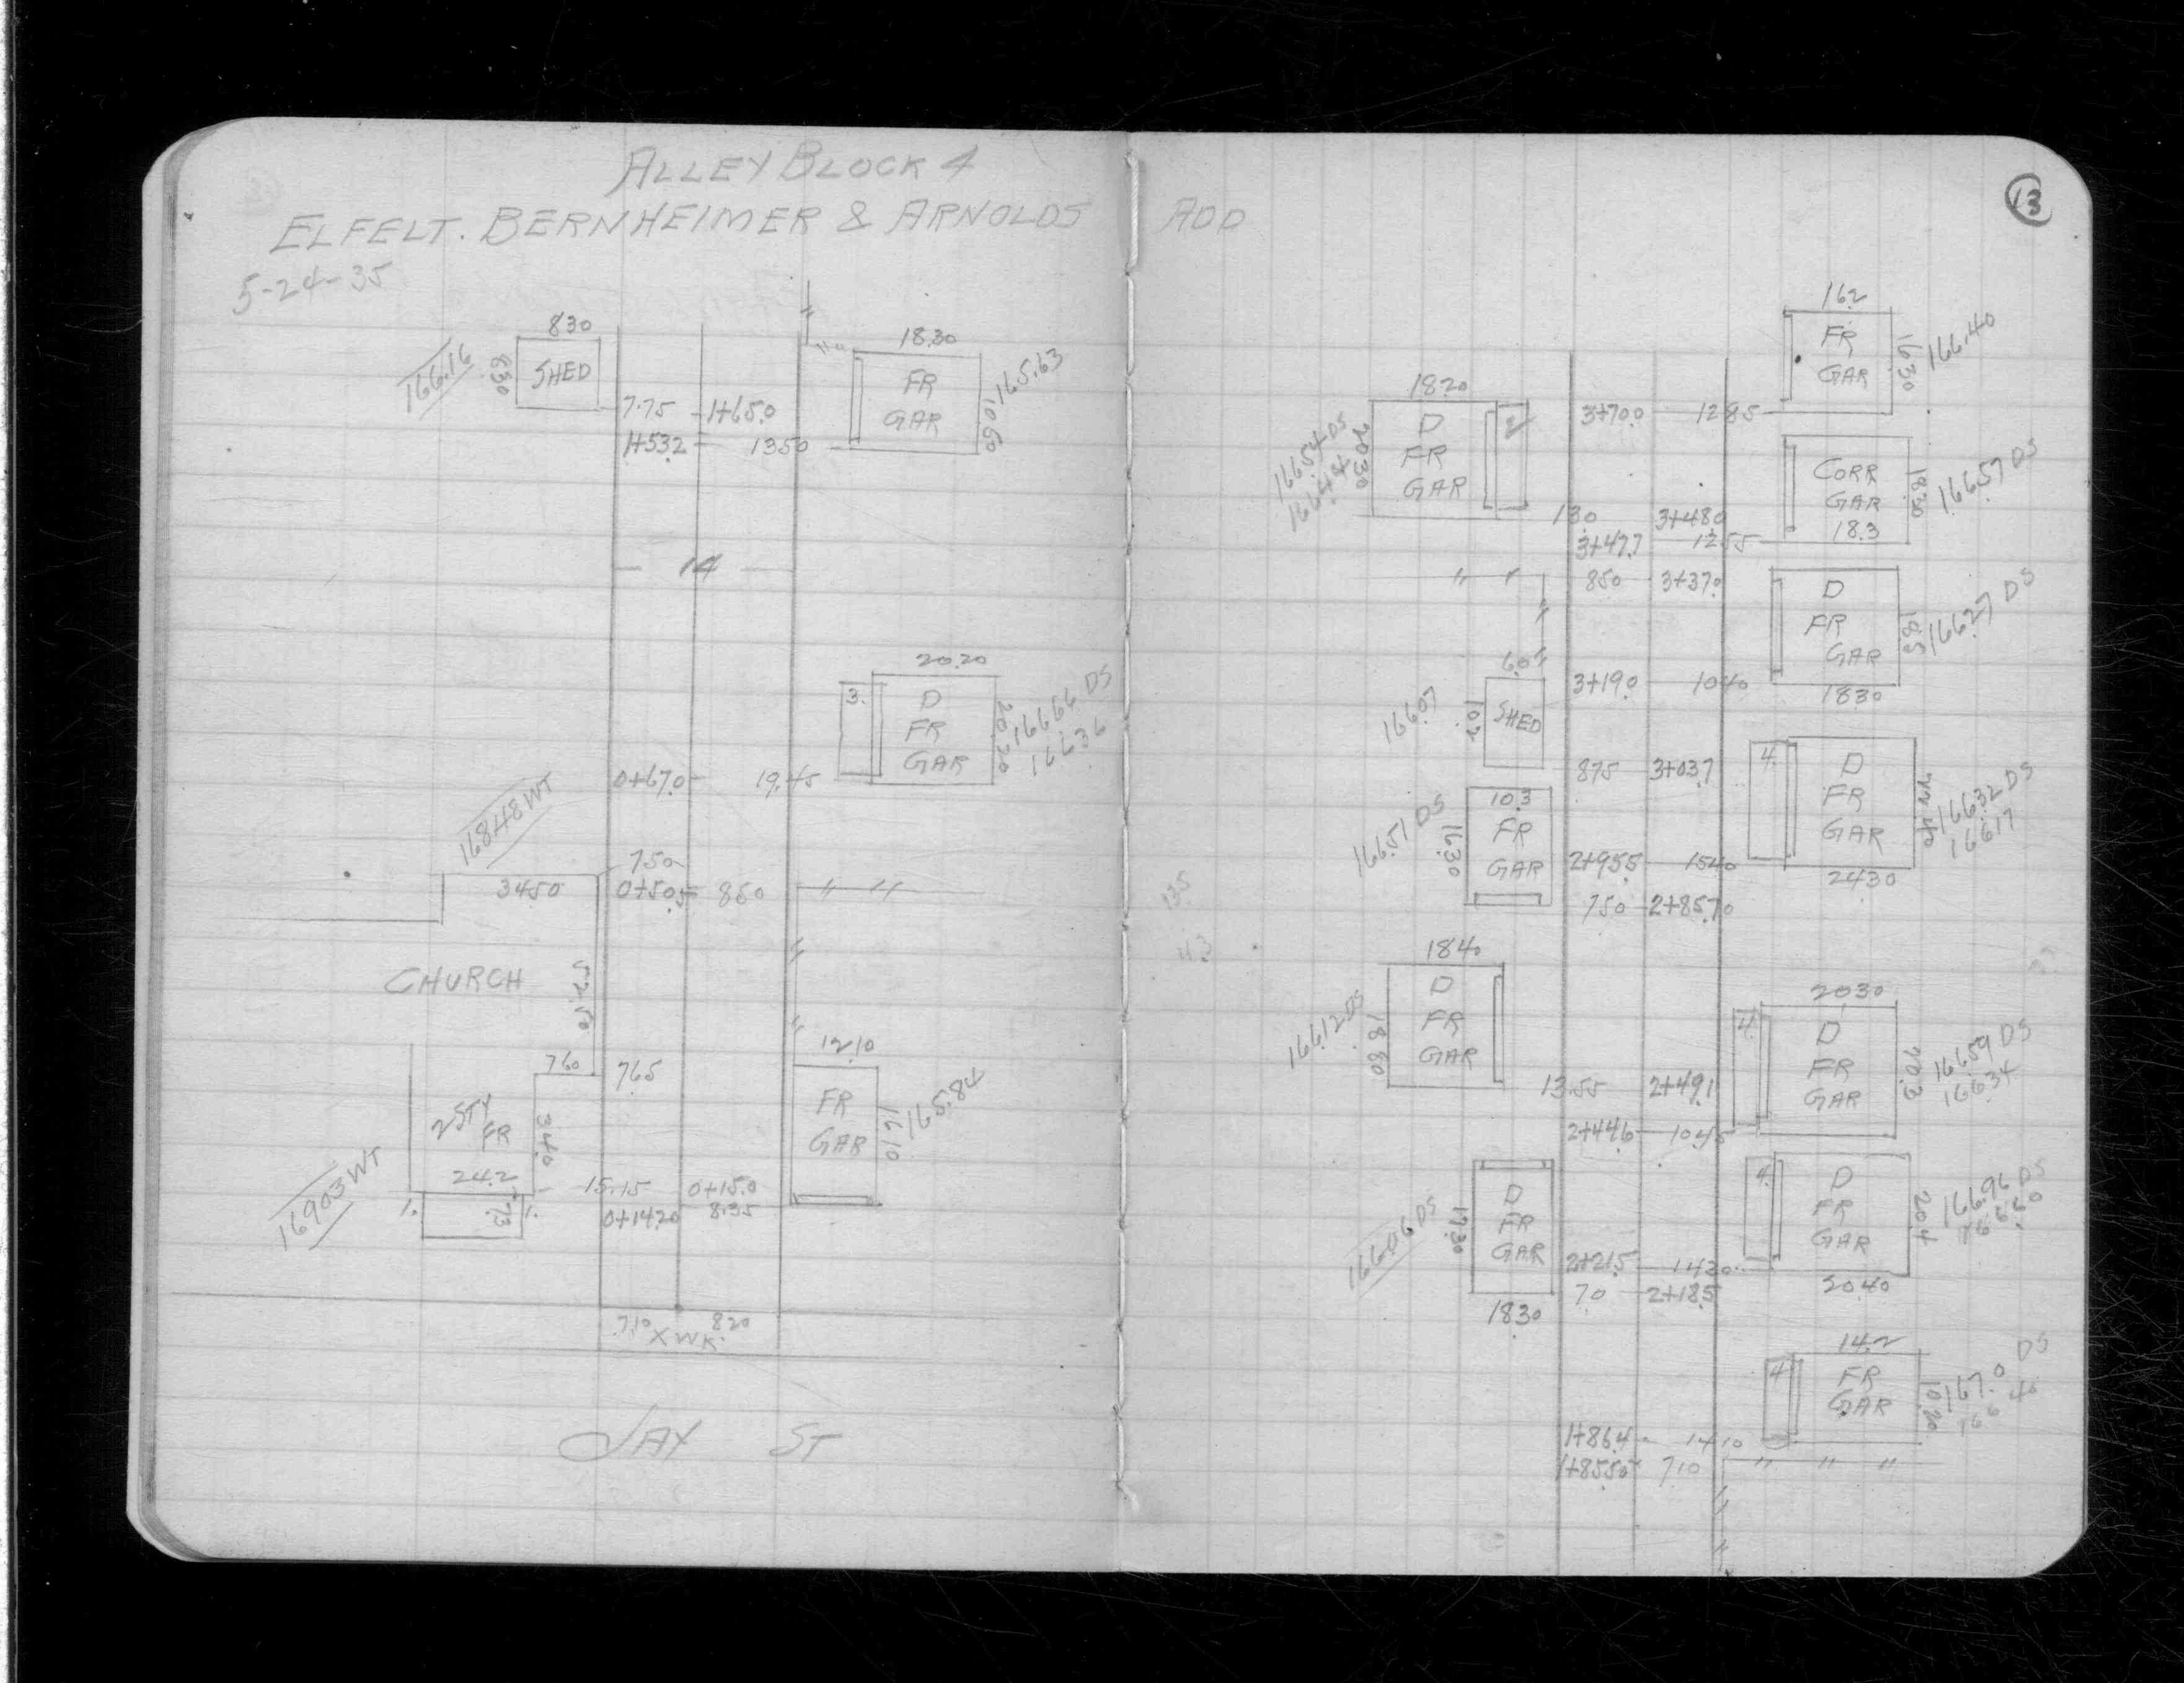 ALLEY BLOCK 4
ELFELT. BERNHEIMER & ARNOLDS ADD
5-24-35
8.30
166.16
8.30
SHED
7.75 1+65.0
1+53.2 13.50
18.30
FR
GAR
10.60
165.63
14
20.20
3.
D
FR
GAR
20.20
166.66 DS
166.36
0+67.0 19.45
168.48 WT
7.50
34.50
0+50.5 8.50
CHURCH
52.50
7.60
7.65
2 STY
FR
34.0
24.2
1.
7.3
1.
169.03 WT
15.15 0+15.0
0+14.20 8.35
12.10
FR
GAR
16.10
165.84
7.10 8.20
X WK.
JAY ST
13
16.2
FR
GAR
16.30
166.40
18.20
D
FR
GAR
2
20.30
166.54 DS
166.44
3+70.0 12.85
CORR
GAR
18.3
18.30
166.57 DS
13.0 3+48.0
3+47.7 12.55
8.50 3+37.0
D
FR
GAR
18.5
18.30
166.27 DS
6.0
SHED
10.2
166.07
3+19.0 10.40
8.75 3+03.7
4.
D
FR
GAR
22.40
24.30
166.32 DS
166.17
10.3
FR
GAR
16.30
166.51 DS
2+95.5 15.40
7.50 2+85.70
13.5
11.3
18.40
D
FR
GAR
18.80
166.12 DS
20.30
4.
D
FR
GAR
20.3
166.59 DS
166.34
13.55 2+49.1
2+44.6 10.45
D
FR
GAR
17.30
18.30
166.06 DS
4.
D
FR
GAR
20.4
20.40
166.96 DS
166.60
2+21.5 14.20
7.0 2+18.5
14.2
4
FR
GAR
10.20
167.0 DS
166.40
1+86.4 14.10
1+85.50 7.10